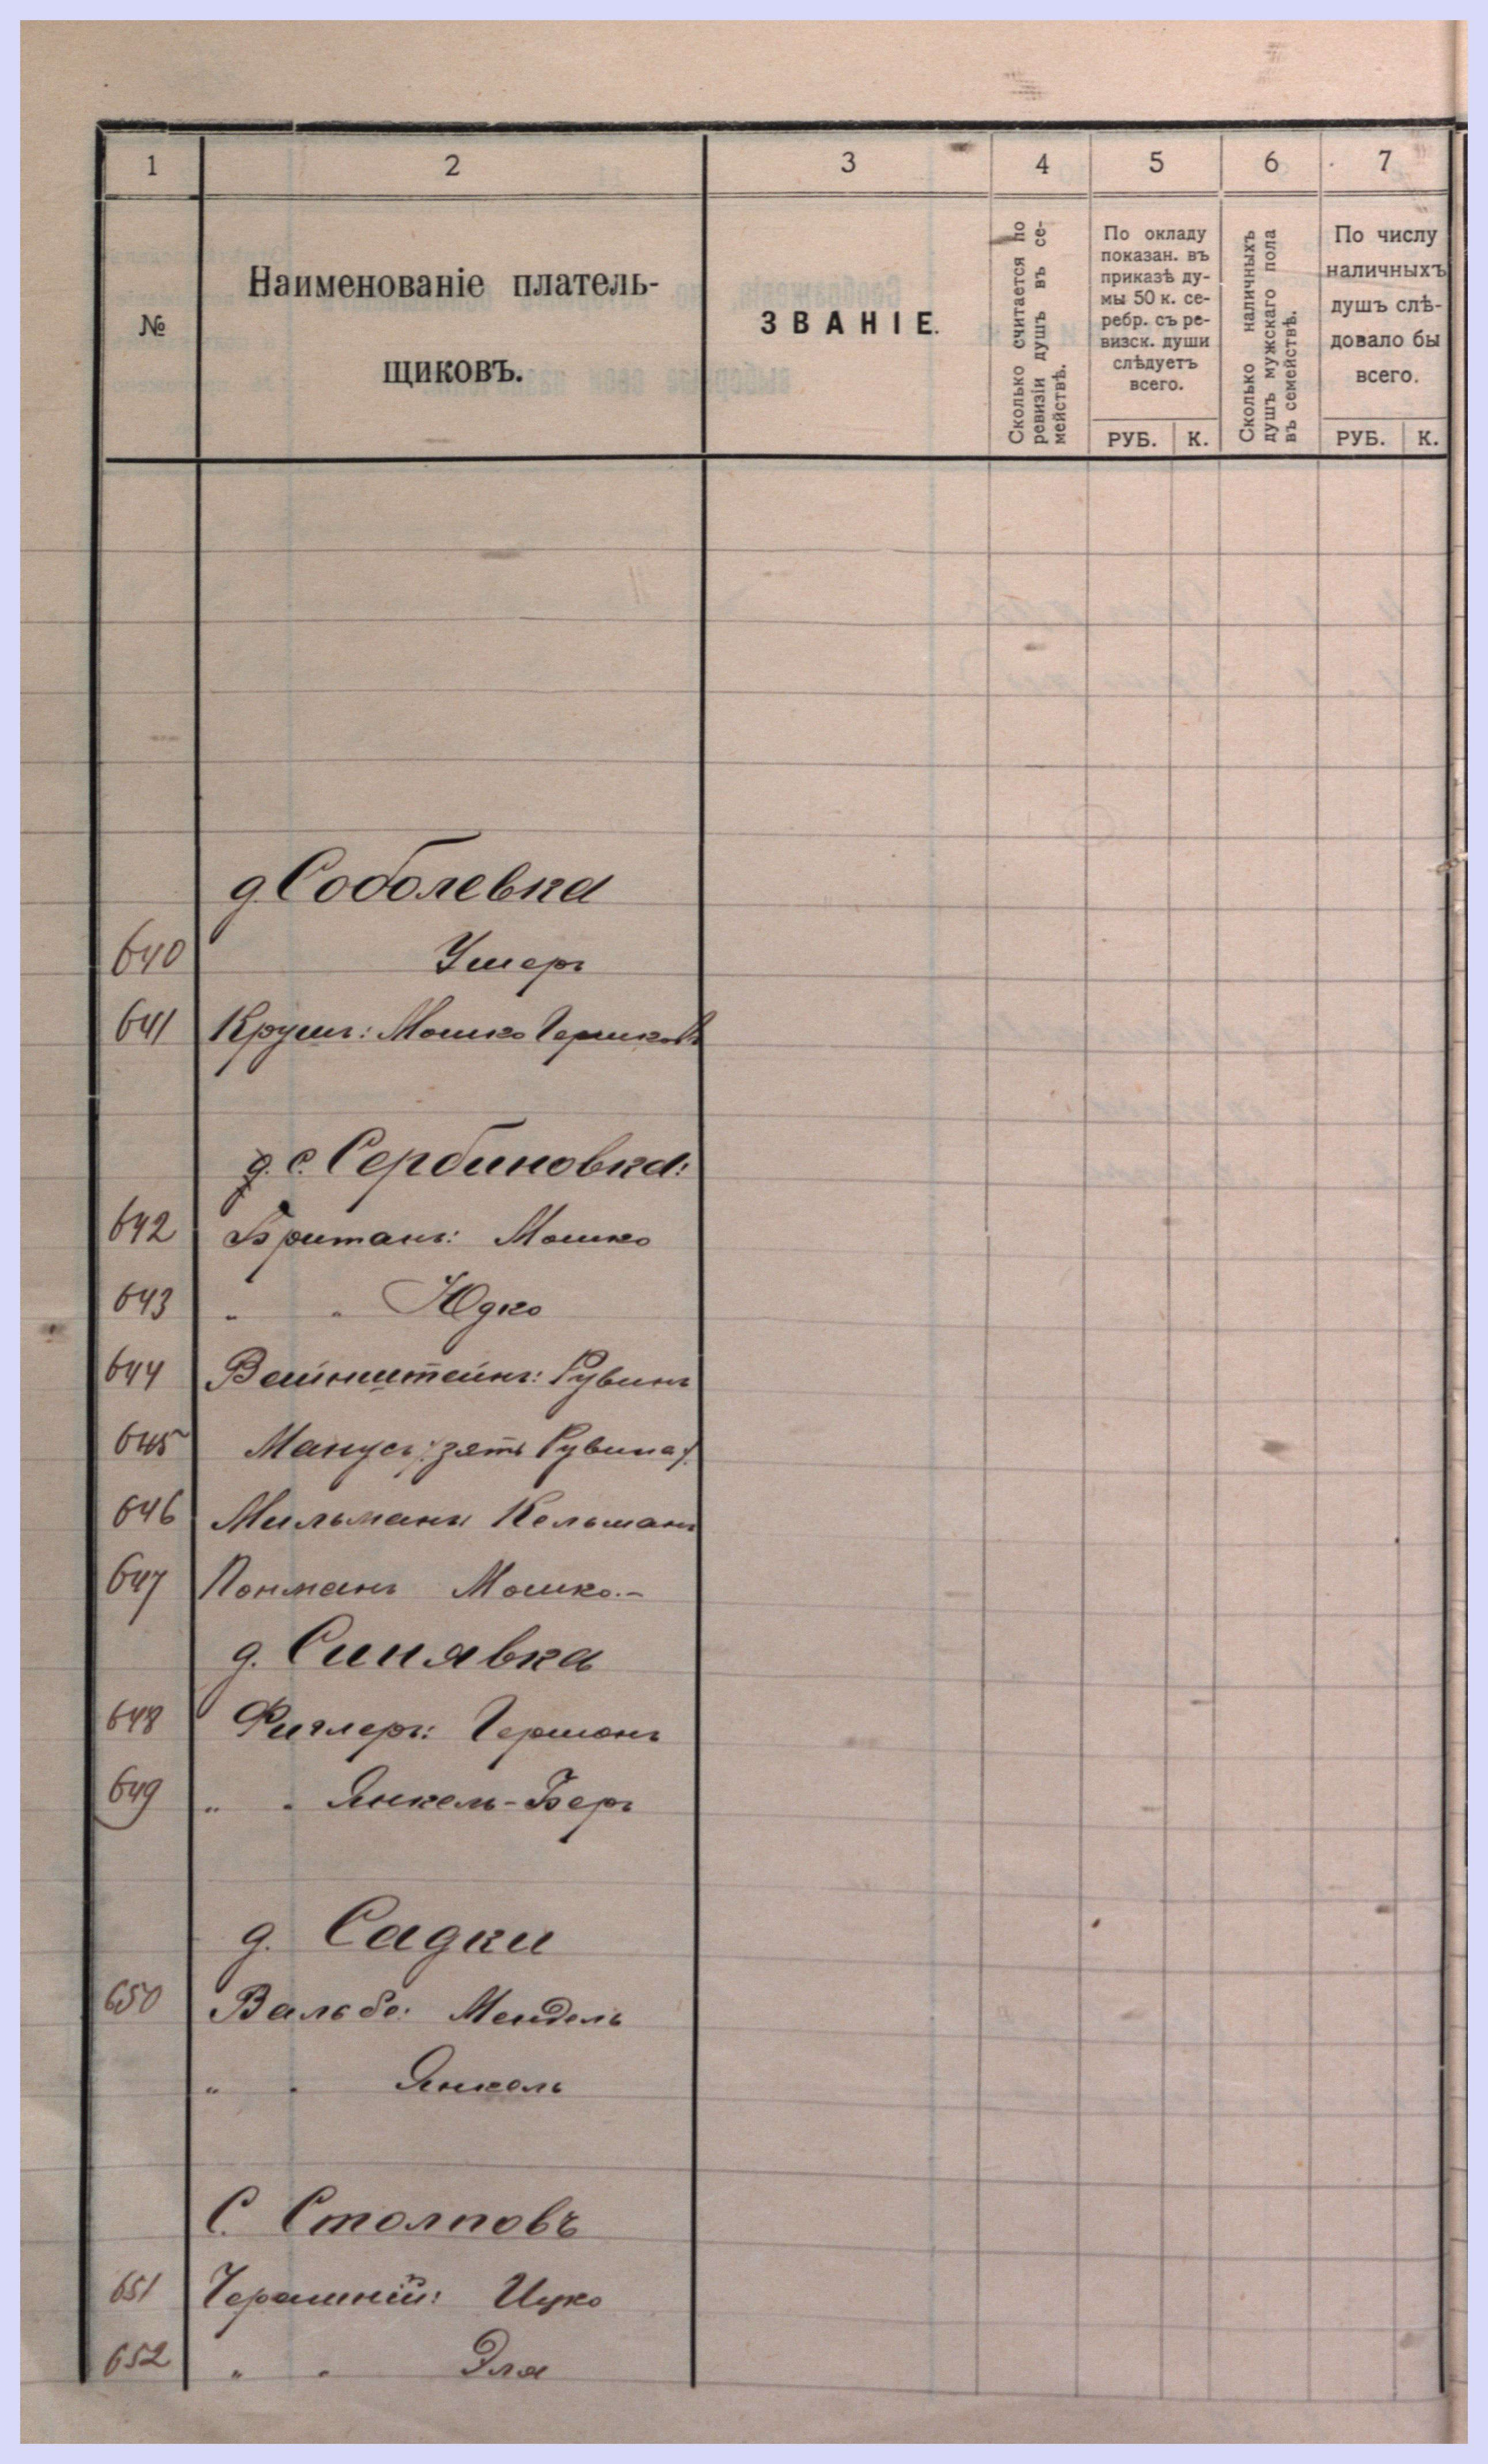 1 2 3 4 5 6 7
№
Наименованіе платель-
щиковъ.
ЗВАНІЕ.
Сколько считается по
ревизіи душъ въ се-
мействѣ.
По окладу
показан. въ
приказѣ ду-
мы 50 к. се-
ребр. съ ре-
визск. души
слѣдуетъ
всего.
РУБ. К.
Сколько наличныхъ
душъ мужскаго пола
въ семействѣ.
По числу
наличныхъ
душъ слѣ-
довало бы
всего.
РУБ. К.
д. Соболевка
640 Ушеръ
641 Крушъ: Мошко Гершковъ
с. Сербиновка:
642 Британъ: Мошко
643 " " Юдко
644 Вайнштейнъ: Рувинъ
645 Манусъ /: зять Рувина /:
646 Мильманъ Кельманъ
647 Понманъ Мошко.-
д. Синявка
648 Фиглеръ: Гершонъ
649 " " Янкель-Беръ
д. Садки
650 Вальбе: Мендель
" " Янкель
С. Столповъ
651 Ицко
652 " " Эля